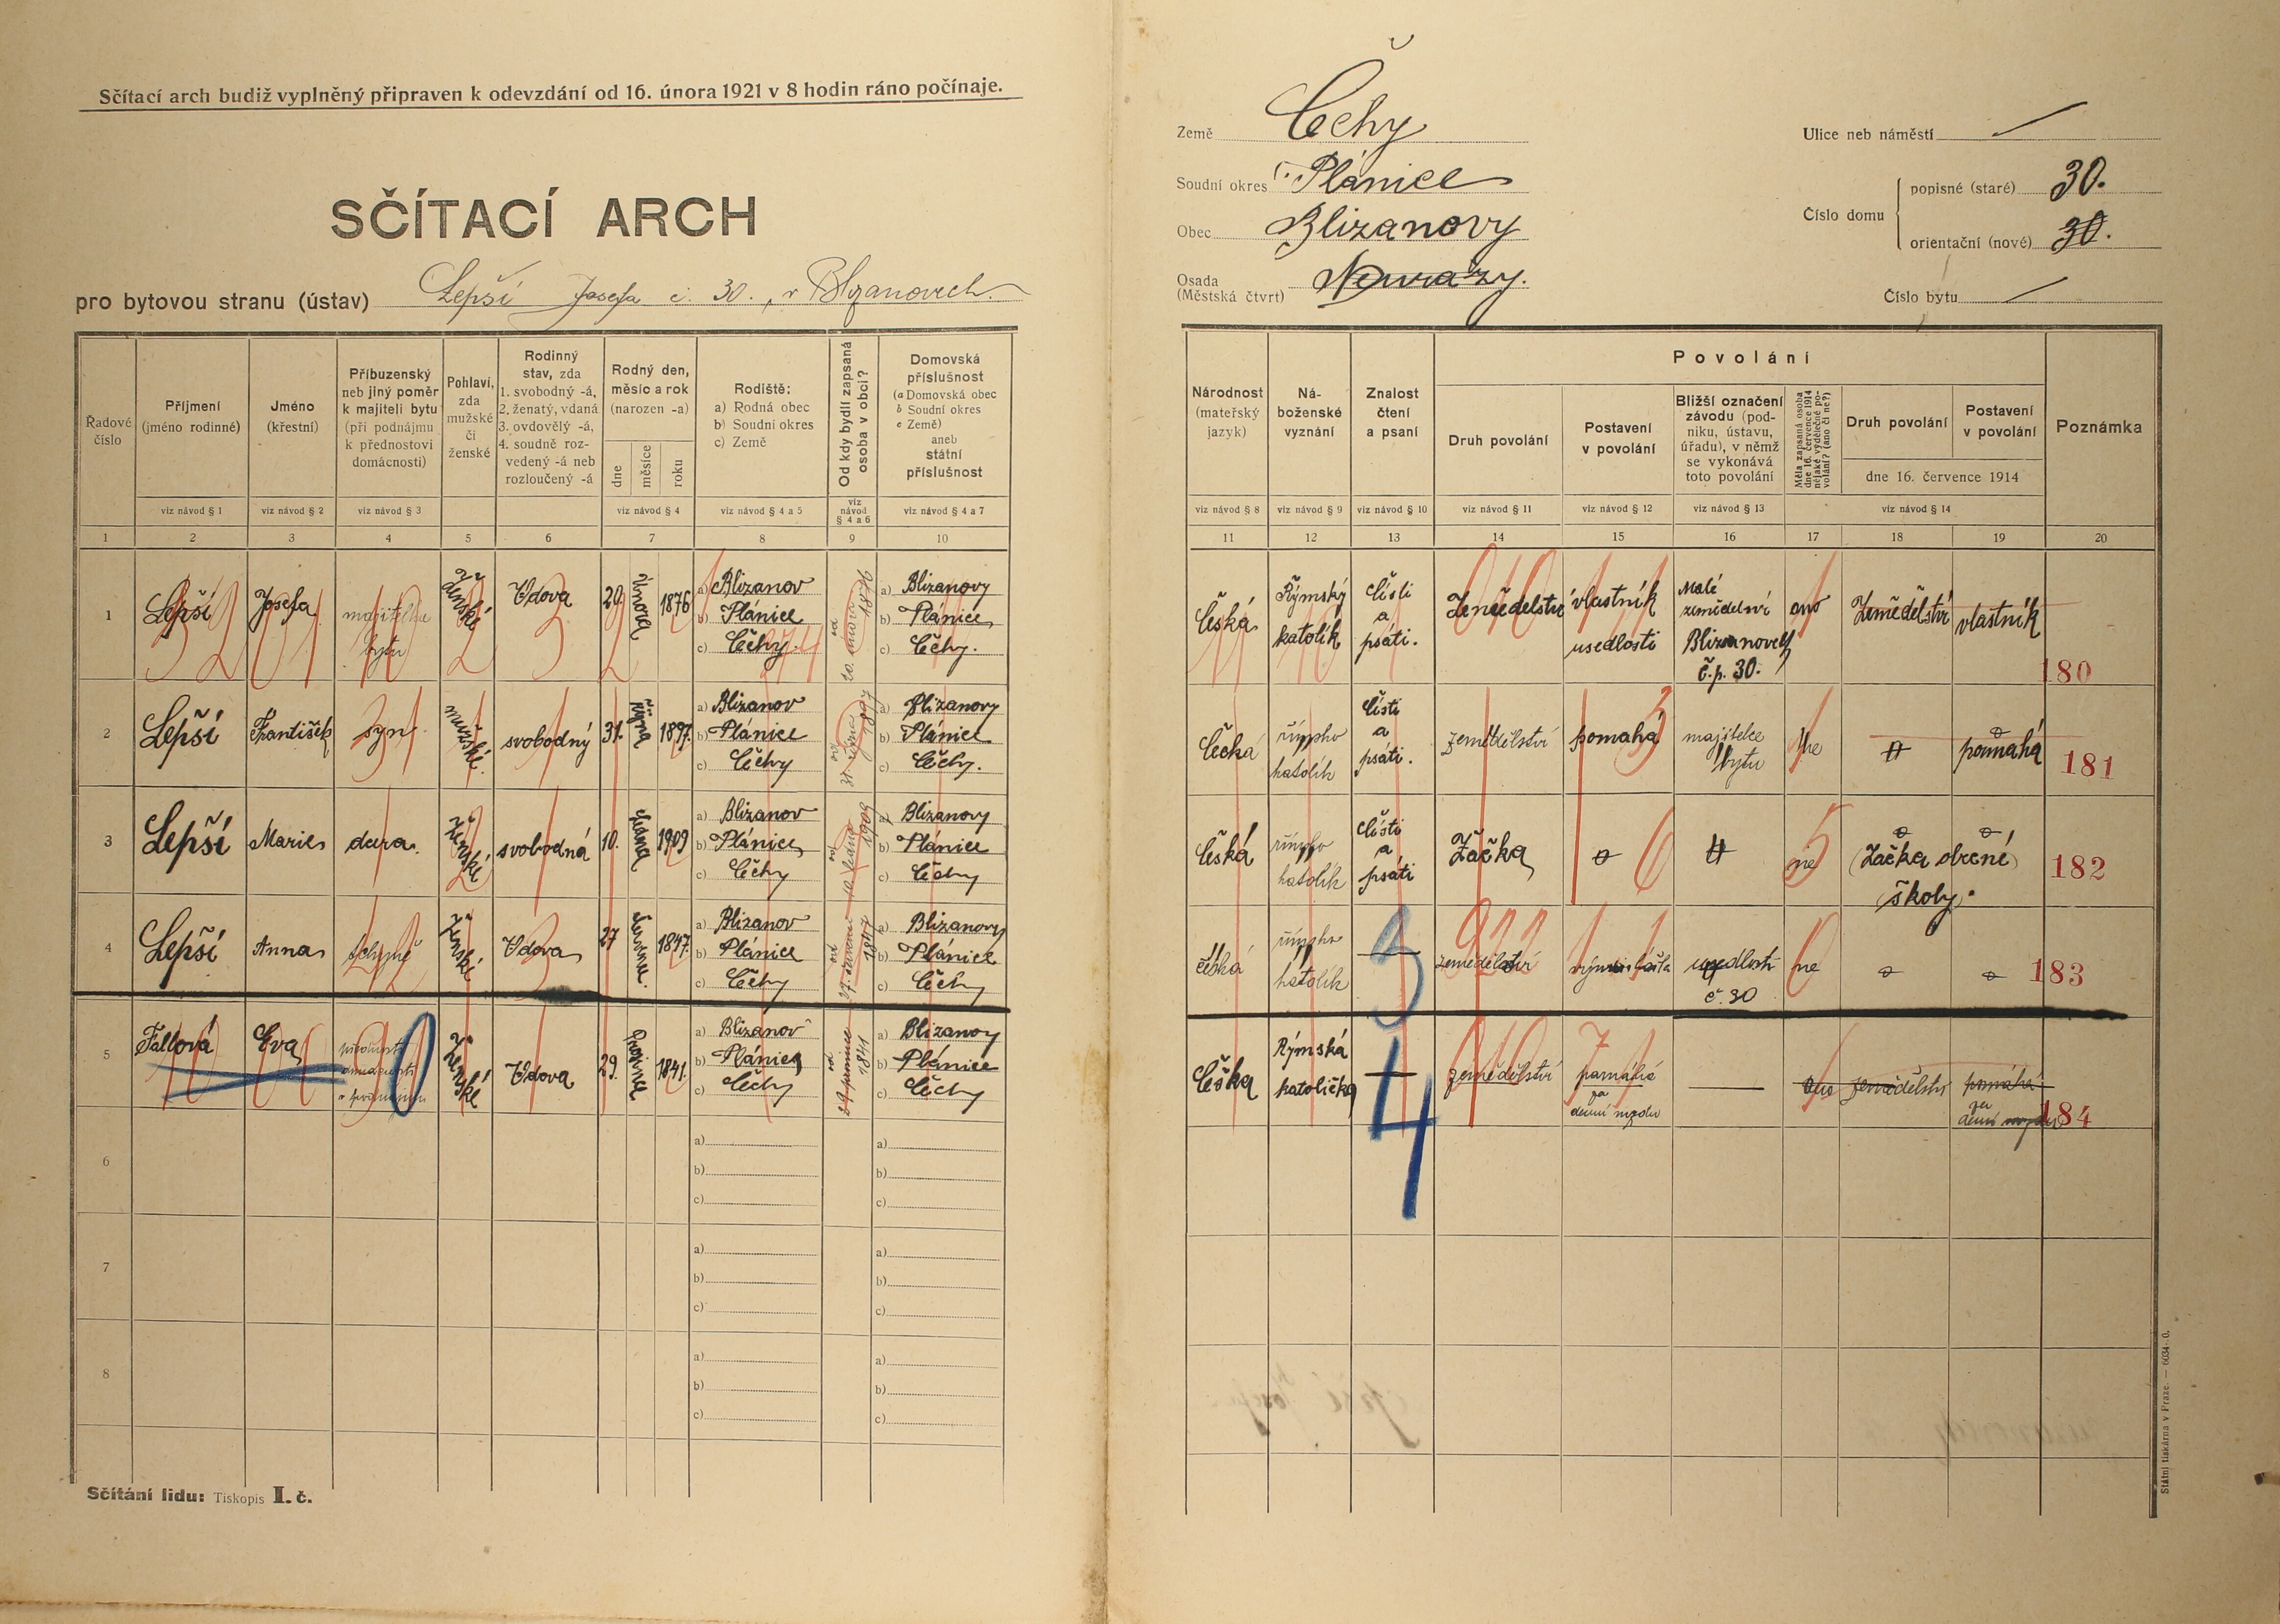 Sčítací arch budiž vyplněný připraven k odevzdání od 16. února 1921 v 8 hodin ráno počínaje.
SČÍTACÍ ARCH
pro bytovou stranu (ústav) Lepší Josefa č. 30., v Blizanovech.
Země Čechy
Soudní okres Plánice
Obec Blizanovy
Osada (Městská čtvrt) Novrazy.
Ulice neb náměstí —
Číslo domu
popisné (staré) 30.
orientační (nové) 30.
Číslo bytu —
Řadové číslo
Příjmení (jméno rodinné)
Jméno (křestní)
Příbuzenský neb jiný poměr k majiteli bytu (při podnájmu k přednostovi domácnosti)
Pohlaví, zda mužské či ženské
Rodinný stav, zda
1. svobodný -á,
2. ženatý, vdaná
3. ovdovělý -á,
4. soudně rozvedený -á neb rozloučený -á
Rodný den, měsíc a rok (narozen -a)
dne
měsíce
roku
Rodiště:
a) Rodná obec
b) Soudní okres
c) Země
Od kdy bydlí zapsaná osoba v obci?
Domovská příslušnost
(a Domovská obec
b Soudní okres
c Země)
aneb
státní příslušnost
viz návod § 1
viz návod § 2
viz návod § 3
viz návod § 4
viz návod § 4 a 5
viz návod § 4 a 6
viz návod § 4 a 7
1 2 3 4 5 6 7 8 9 10
Národnost (mateřský jazyk)
Náboženské vyznání
Znalost čtení a psaní
Povolání
Druh povolání
Postavení v povolání
Bližší označení závodu (podniku, ústavu, úřadu), v němž se vykonává toto povolání
Měla zapsaná osoba dne 16. července 1914 nějaké výdělečné povolání? (ano či ne?)
Druh povolání
Postavení v povolání
dne 16. července 1914
Poznámka
viz návod § 8
viz návod § 9
viz návod § 10
viz návod § 11
viz návod § 12
viz návod § 13
viz návod § 14
11 12 13 14 15 16 17 18 19 20
1 Lepší Josefa majitelka bytu ženské Vdova 20. Února 1876
a) Blizanov
b) Plánice
c) Čechy.
od 20. února 1876
a) Blizanovy
b) Plánice
c) Čechy.
Česká Římský katolík Čísti a psáti. Zemědelství vlastník usedlosti Malé zemědelství Blizanovech č.p. 30. ano Zemědělství vlastník
180
2 Lepší František syn mužské. svobodný 31. Října 1897.
a) Blizanov
b) Plánice
c) Čechy
od 31. října 1897
a) Blizanovy
b) Plánice
c) Čechy.
Čechá římsko katolík Čísti a psáti. zemědělství pomahá majitelce bytu ne pomahá
181
3 Lepší Marie dcera. ženské svobodná 10. ledna 1909
a) Blizanov
b) Plánice
c) Čechy
od 10. ledna 1909
a) Blizanovy
b) Plánice
c) Čechy
Česká římsko katolík Čísti a psáti Žačka ne (Žačka obecné školy.
182
4 Lepší Anna tchyně ženské Vdova 27 července. 1847.
a) Blizanov
b) Plánice
c) Čechy
od 27. července 1847
a) Blizanovy
b) Plánice
c) Čechy
česká římsko katolík — 3 zemědělství 922 usedlosti č. 30 ne
183
5 Fallová Eva ženské Vdova 29. Prosince 1841.
a) Blizanov
b) Plánice
c) Čechy
od 29 prosince 1841
a) Blizanovy
b) Plánice
c) Čechy
Češka Rýmská katolička — 4 zemědělství pamáhá za denní mzdu — ano zemědělství pomáhá za denní mzdu
184
6
a)
b)
c)
a)
b)
c)
7
a)
b)
c)
a)
b)
c)
8
a)
b)
c)
a)
b)
c)
Sčítání lidu: Tiskopis I. č.
Státní tiskárna v Praze. — 6034-0.